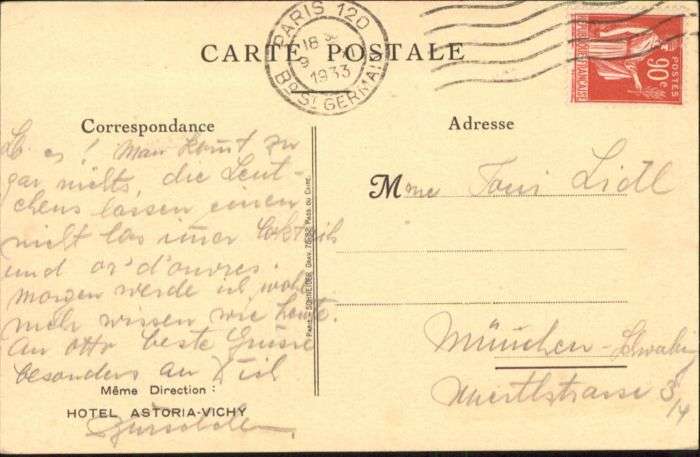 PARIS 120
18 30
9
1933
Bd St GERMAIN
CARTE POSTALE
90c
POSTES
Correspondance
Adresse
L. es! Man kommt zu
gar nichts, die Leut-
chens lassen einen
nicht los immer
und or'd'ouvres.
Morgen werde ich wohl
mehr wissen wie heute.
An Otto beste Grüsse
besonders an Dich
Même Direction :
HOTEL ASTORIA-VICHY
Mme Toni Lidl
München - Schwabg
3/4